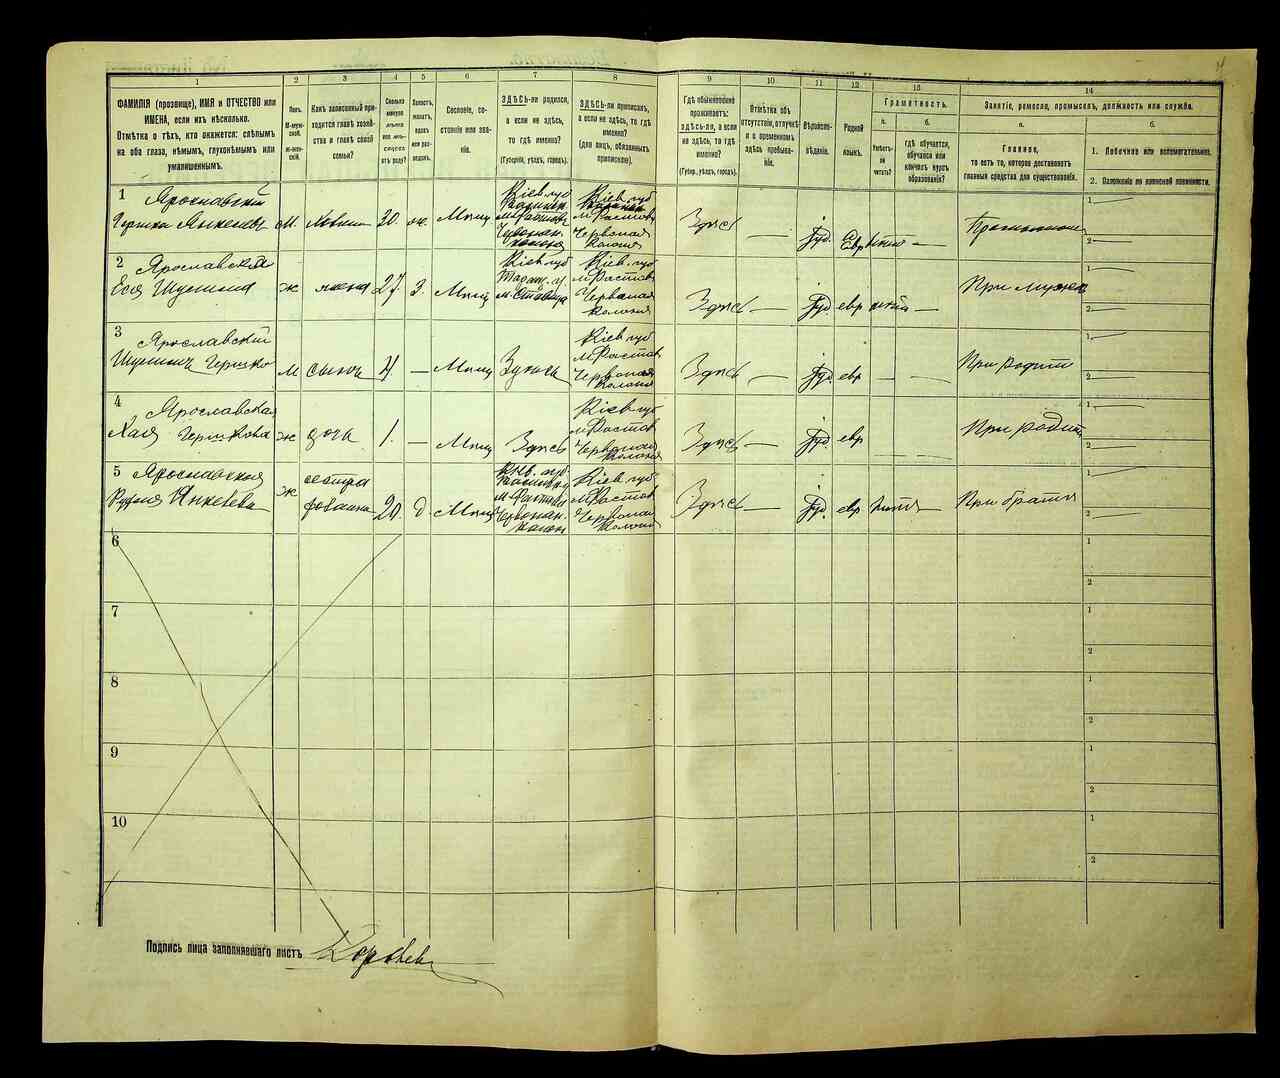 1 2 3 4 5 6 7 8 9 10 11 12 13 14
ФАМИЛІЯ (прозвище), ИМЯ и ОТЧЕСТВО или
ИМЕНА, если ихъ нѣсколько.
Отмѣтка о тѣхъ, кто окажется: слѣпымъ
на оба глаза, нѣмымъ, глухонѣмымъ или
умалишеннымъ.
Полъ.
М-мужской.
Ж-женскій.
Какъ записанный приходится главѣ хозяйства и главѣ своей семьи?
Сколько минуло лѣтъ или мѣсяцевъ отъ роду?
Холостъ, женатъ, вдовъ или разведенъ.
Сословіе, состояніе или званіе.
ЗДѢСЬ-ли родился,
а если не здѣсь,
то гдѣ именно?
(Губернія, уѣздъ, городъ).
ЗДѢСЬ-ли приписанъ,
а если не здѣсь, то гдѣ
именно?
(Для лицъ, обязанныхъ
припискою).
Гдѣ обыкновенно
проживаетъ:
ЗДѢСЬ-ли, а если
не здѣсь, то гдѣ
именно?
(Губер., уѣздъ, городъ).
Отмѣтка объ
отсутствіи, отлучкѣ
и о временномъ
здѣсь пребываніи.
Вѣроисповѣданіе.
Родной
языкъ.
Грамотность.
а.
Умѣетъ-ли
читать?
б.
гдѣ обучается,
обучался или
кончилъ курсъ
образованія?
Занятіе, ремесло, промыселъ, должность или служба.
а.
Главное,
то есть то, которое доставляетъ
главныя средства для существованія.
б.
1. Побочное или вспомогательное.
2. Положеніе по воинской повинности.
1 Ярославскій
М. Хозяинъ 30. ж. Мѣщ
Кіев. губ
Кіев. губ
м. Фастовъ
Червоная
Колонія
Здѣсь — Іуд. Евр —
1 —
2 —
2 Ярославская
Еся Шулимова ж жена 27. З. Мѣщ
Кіев. губ
Таращ. у.
Кіев. губ
м. Фастовъ
Червоная
Колонія
Здѣсь — Іуд. евр — При мужѣ
1 —
2 —
3 Ярославскій
Шулимъ Гершко м сынъ 4 — Мѣщ Здѣсь
Кіев. губ
м. Фастов
Червоная
Колонія
Здѣсь — Іуд. евр — — При родит
1 —
2 —
4 Ярославская
Хая Гершкова ж дочь 1. — Мѣщ Здѣсь
Кіев. губ
м. Фастов
Червоная
Колонія
Здѣсь — Іуд. евр При родит
1 —
2 —
5 Ярославская
Янкелева ж сестра 20. д Мѣщ
м. Фастовъ
Кіев. губ
м. Фастов
Червоная
Колонія
Здѣсь — Іуд. евр — При братѣ
1 —
2 —
6 1
2
7 1
2
8 1
2
9 1
2
10 1
2
Подпись лица заполнявшаго листъ